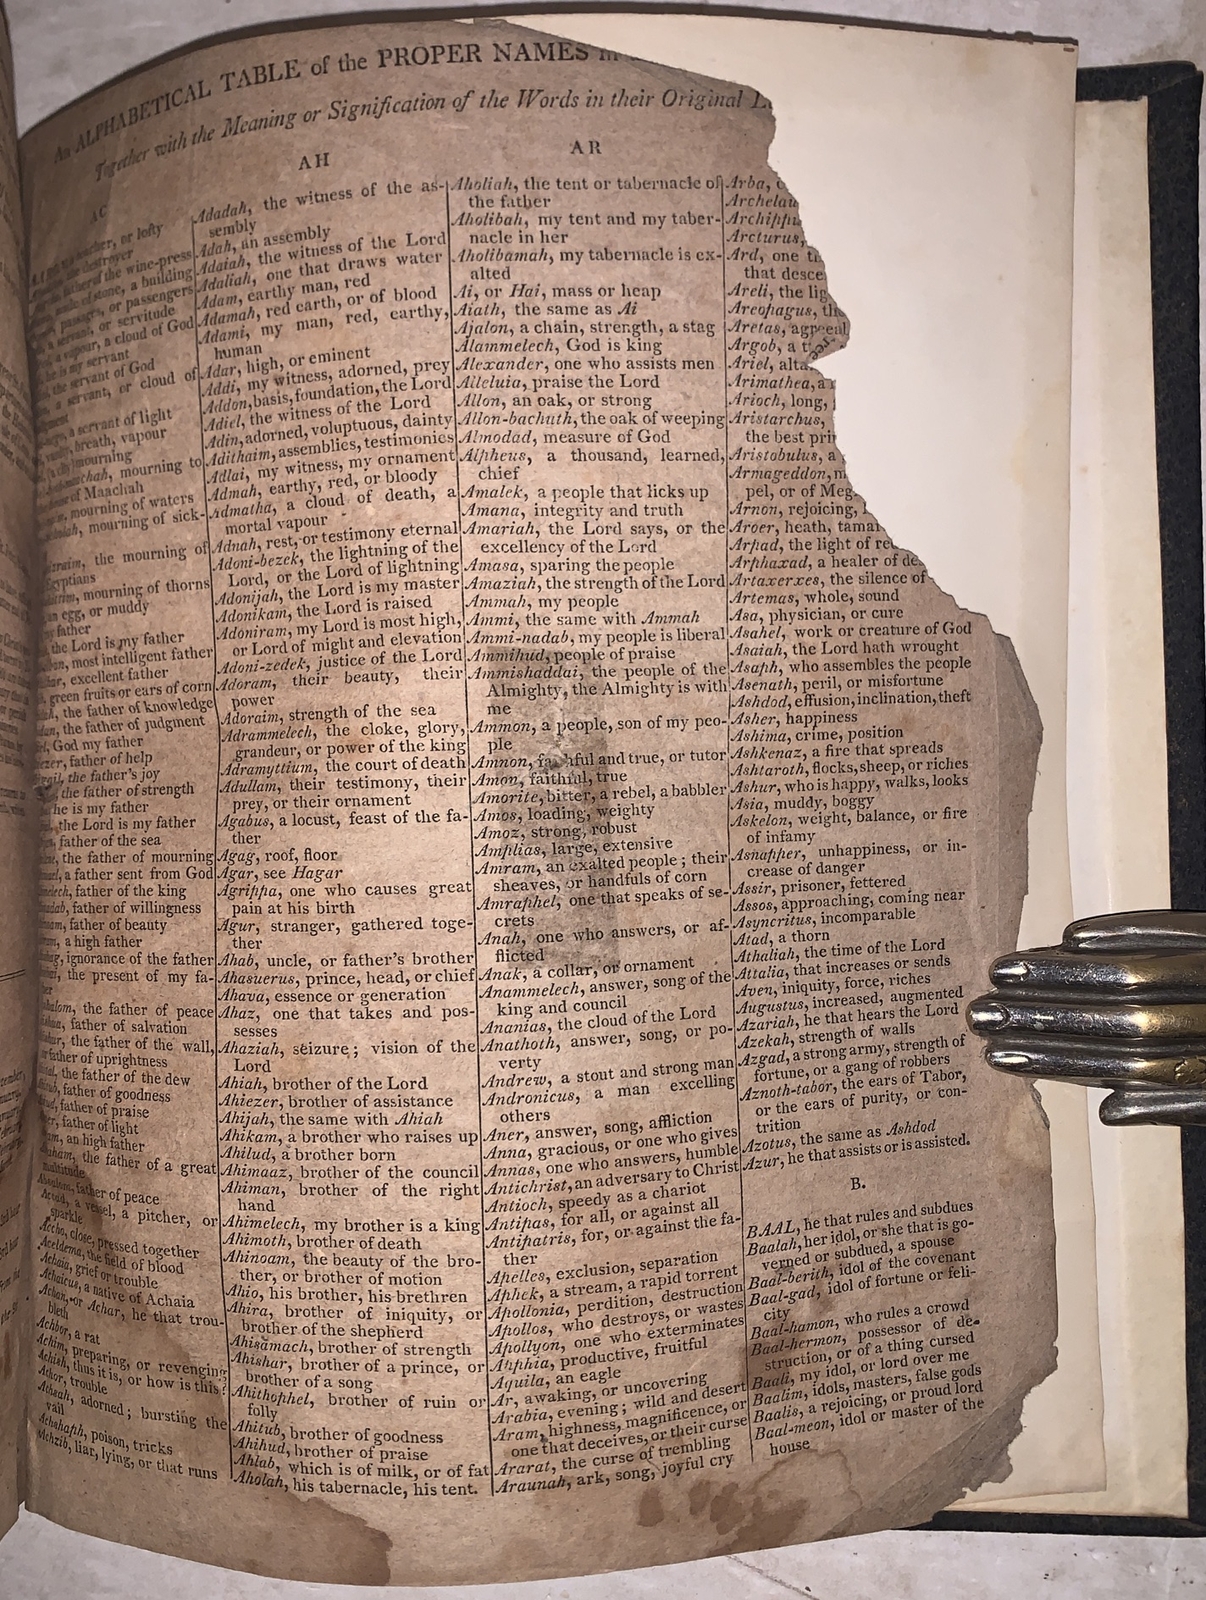 An ALPHABETICAL TABLE of the PROPER NAMES in
Together with the Meaning or Signification of the Words in their Original
AC
teacher, or lofty
destroyer
of the wine-press
of stone, a building
or passengers
a servant, or servitude
a vapour, a cloud of God
he is my servant
the servant of God
a servant, or cloud of
a servant of light
breath, vapour
mourning
mourning to
of Maachah
mourning of waters
mourning of sick-
the mourning of
Egyptians
mourning of thorns
an egg, or muddy
my father
the Lord is my father
most intelligent father
excellent father
green fruits or ears of corn
the father of knowledge
the father of judgment
God my father
father of help
the father's joy
the father of strength
he is my father
the Lord is my father
father of the sea
the father of mourning
a father sent from God
father of the king
father of willingness
father of beauty
a high father
ignorance of the father
the present of my fa-
the father of peace
father of salvation
the father of the wall,
father of uprightness
the father of the dew
father of goodness
father of praise
father of light
an high father
the father of a great
multitude
Absalom, father of peace
Accad, a vessel, a pitcher, or
sparkle
Accho, close, pressed together
Aceldema, the field of blood
Achaia, grief or trouble
Achaicus, a native of Achaia
Achan, or Achar, he that trou-
bleth
Achbor, a rat
Achim, preparing, or revenging
Achish, thus it is, or how is this?
Achor, trouble
Achsah, adorned; bursting the
vail
Achshaph, poison, tricks
Achzib, liar, lying, or that runs
AH
Adadah, the witness of the as-
sembly
Adah, an assembly
Adaiah, the witness of the Lord
Adaliah, one that draws water
Adam, earthy man, red
Adamah, red earth, or of blood
Adami, my man, red, earthy,
human
Adar, high, or eminent
Addi, my witness, adorned, prey
Addon, basis, foundation, the Lord
Adiel, the witness of the Lord
Adin, adorned, voluptuous, dainty
Adithaim, assemblies, testimonies
Adlai, my witness, my ornament
Admah, earthy, red, or bloody
Admatha, a cloud of death, a
mortal vapour
Adnah, rest, or testimony eternal
Adoni-bezek, the lightning of the
Lord, or the Lord of lightning
Adonijah, the Lord is my master
Adonikam, the Lord is raised
Adoniram, my Lord is most high,
or Lord of might and elevation
Adoni-zedek, justice of the Lord
Adoram, their beauty, their
power
Adoraim, strength of the sea
Adrammelech, the cloke, glory,
grandeur, or power of the king
Adramyttium, the court of death
Adullam, their testimony, their
prey, or their ornament
Agabus, a locust, feast of the fa-
ther
Agag, roof, floor
Agar, see Hagar
Agrippa, one who causes great
pain at his birth
Agur, stranger, gathered toge-
ther
Ahab, uncle, or father's brother
Ahasuerus, prince, head, or chief
Ahava, essence or generation
Ahaz, one that takes and pos-
sesses
Ahaziah, seizure; vision of the
Lord
Ahiah, brother of the Lord
Ahiezer, brother of assistance
Ahijah, the same with Ahiah
Ahikam, a brother who raises up
Ahilud, a brother born
Ahimaaz, brother of the council
Ahiman, brother of the right
hand
Ahimelech, my brother is a king
Ahimoth, brother of death
Ahinoam, the beauty of the bro-
ther, or brother of motion
Ahio, his brother, his brethren
Ahira, brother of iniquity, or
brother of the shepherd
Ahisamach, brother of strength
Ahishar, brother of a prince, or
brother of a song
Ahithophel, brother of ruin or
folly
Ahitub, brother of goodness
Ahihud, brother of praise
Ahlab, which is of milk, or of fat
Aholah, his tabernacle, his tent.
AR
Aholiah, the tent or tabernacle of
the father
Aholibah, my tent and my taber-
nacle in her
Aholibamah, my tabernacle is ex-
alted
Ai, or Hai, mass or heap
Aiath, the same as Ai
Ajalon, a chain, strength, a stag
Alammelech, God is king
Alexander, one who assists men
Alleluia, praise the Lord
Allon, an oak, or strong
Allon-bachuth, the oak of weeping
Almodad, measure of God
Alpheus, a thousand, learned,
chief
Amalek, a people that licks up
Amana, integrity and truth
Amariah, the Lord says, or the
excellency of the Lord
Amasa, sparing the people
Amaziah, the strength of the Lord
Ammah, my people
Ammi, the same with Ammah
Ammi-nadab, my people is liberal
Ammihud, people of praise
Ammishaddai, the people of the
Almighty, the Almighty is with
me
Ammon, a people, son of my peo-
ple
Amnon, faithful and true, or tutor
Amon, faithful, true
Amorite, bitter, a rebel, a babbler
Amos, loading, weighty
Amoz, strong, robust
Amplias, large, extensive
Amram, an exalted people; their
sheaves, or handfuls of corn
Amraphel, one that speaks of se-
crets
Anah, one who answers, or af-
flicted
Anak, a collar, or ornament
Anammelech, answer, song of the
king and council
Ananias, the cloud of the Lord
Anathoth, answer, song, or po-
verty
Andrew, a stout and strong man
Andronicus, a man excelling
others
Aner, answer, song, affliction
Anna, gracious, or one who gives
Annas, one who answers, humble
Antichrist, an adversary to Christ
Antioch, speedy as a chariot
Antipas, for all, or against all
Antipatris, for, or against the fa-
ther
Apelles, exclusion, separation
Aphek, a stream, a rapid torrent
Apollonia, perdition, destruction
Apollos, who destroys, or wastes
Apollyon, one who exterminates
Apphia, productive, fruitful
Aquila, an eagle
Ar, awaking, or uncovering
Arabia, evening; wild and desert
Aram, highness, magnificence, or
one that deceives, or their curse
Ararat, the curse of trembling
Araunah, ark, song, joyful cry
Arba,
Archelau
Archippu
Arcturus,
Ard, one
that desce
Areli, the
Areopagus,
Aretas,
Argob, a
Ariel, alta
Arimathea, a
Arioch, long,
Aristarchus,
the best
Aristobulus, a
Armageddon,
pel, or of Meg
Arnon, rejoicing,
Aroer, heath, tamar
Arpad, the light of
Arphaxad, a healer of
Artaxerxes, the silence of
Artemas, whole, sound
Asa, physician, or cure
Asahel, work or creature of God
Asaiah, the Lord hath wrought
Asaph, who assembles the people
Asenath, peril, or misfortune
Ashdod, effusion, inclination, theft
Asher, happiness
Ashima, crime, position
Ashkenaz, a fire that spreads
Ashtaroth, flocks, sheep, or riches
Ashur, who is happy, walks, looks
Asia, muddy, boggy
Askelon, weight, balance, or fire
of infamy
Asnapper, unhappiness, or in-
crease of danger
Assir, prisoner, fettered
Assos, approaching, coming near
Asyncritus, incomparable
Atad, a thorn
Athaliah, the time of the Lord
Attalia, that increases or sends
Aven, iniquity, force, riches
Augustus, increased, augmented
Azariah, he that hears the Lord
Azekah, strength of walls
Azgad, a strong army, strength of
fortune, or a gang of robbers
Aznoth-tabor, the ears of Tabor,
or the ears of purity, or con-
trition
Azotus, the same as Ashdod
Azur, he that assists or is assisted.
B.
BAAL, he that rules and subdues
Baalah, her idol, or she that is go-
verned or subdued, a spouse
Baal-berith, idol of the covenant
Baal-gad, idol of fortune or feli-
city
Baal-hamon, who rules a crowd
Baal-hermon, possessor of de-
struction, or of a thing cursed
Baali, my idol, or lord over me
Baalim, idols, masters, false gods
Baalis, a rejoicing, or proud lord
Baal-meon, idol or master of the
house